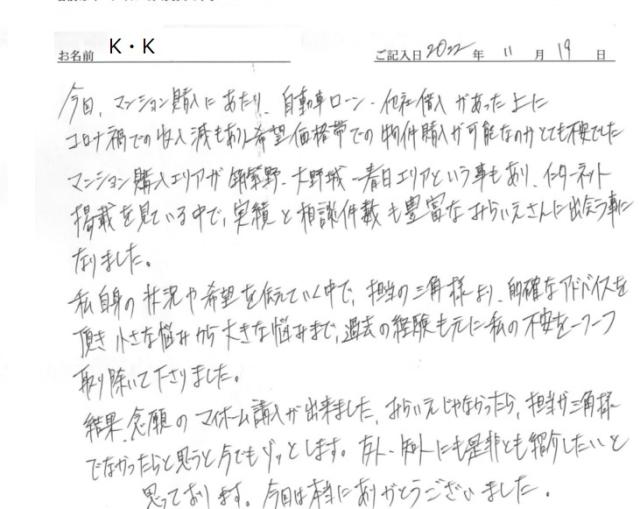 お名前 K・K ご記入日 2022 年 11 月 19 日
今回、マンション購入にあたり、自動車ローン・他社借入があった上に
コロナ禍での収入減もあり希望価格帯での物件購入が可能なのかとても不安でした
マンション購入エリアが筑紫野、大野城〜春日エリアという事もあり、インターネット
掲載を見ている中で、実績と相談件数も豊富なみらいえさんに出会う事に
なりました。
私自身の状況や希望を伝えていく中で、担当の三角様より、的確なアドバイスを
頂き小さな悩みから大きな悩みまで、過去の経験も元に私の不安を一つ一つ
取り除いて下さりました。
結果、念願のマイホーム購入が出来ました。みらいえじゃなかったら、担当が三角様
でなかったらと思うと今でもゾッとします。友人・知人にも是非とも紹介したいと
思っております。今回は本当にありがとうございました。